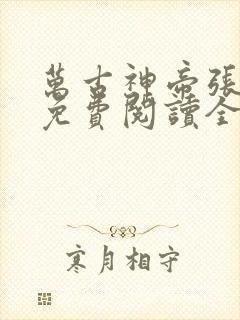 萬古神帝張
免費閱讀全
寒月相守